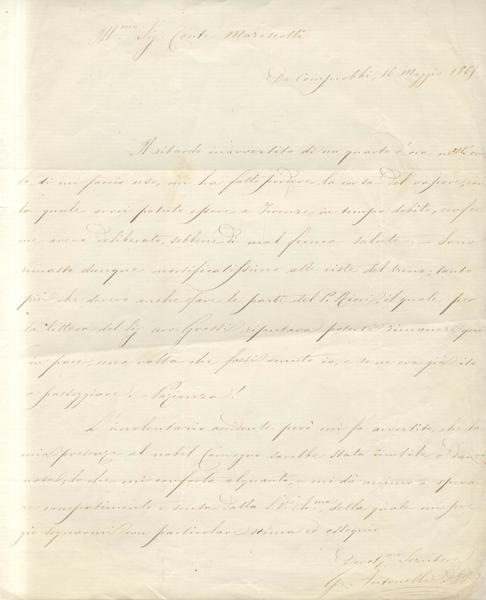 Ill.mo Sig. Conte Marescotti
Da Campiobbi, 16 Maggio 186
Il ritardo inavvertito di un quarto d'ora nell'
di cui faccio uso, mi ha fatto perdere la corsa del vapore, con
la quale avrei potuto essere a Firenze in tempo debito, confor
me aveva deliberato, sebbene di mal ferma salute. - Sono
rimasto dunque mortificatissimo alla vista del treno; tanto
più che doveva anche fare le parti del P. Ricci, il quale per
la lettera del Sig. avv. Grossi reputava potersi rimanere qui
in pace, una volta che fossi venuto io, e se ne era già ito
a passeggiare. - Pazienza!
L'involontario accidente però mi fa avvertito, che la
mia presenza al nobil Consesso sarebbe stata inutile e dan
nosa; lo che mi conforta alquanto, e mi dà animo a spera
re compatimento e scusa dalla S.V. Ch.ma, della quale mi pre
gio segnarmi con particolare stima ed ossequio
Devot.mo Servitore
G. Antonelli